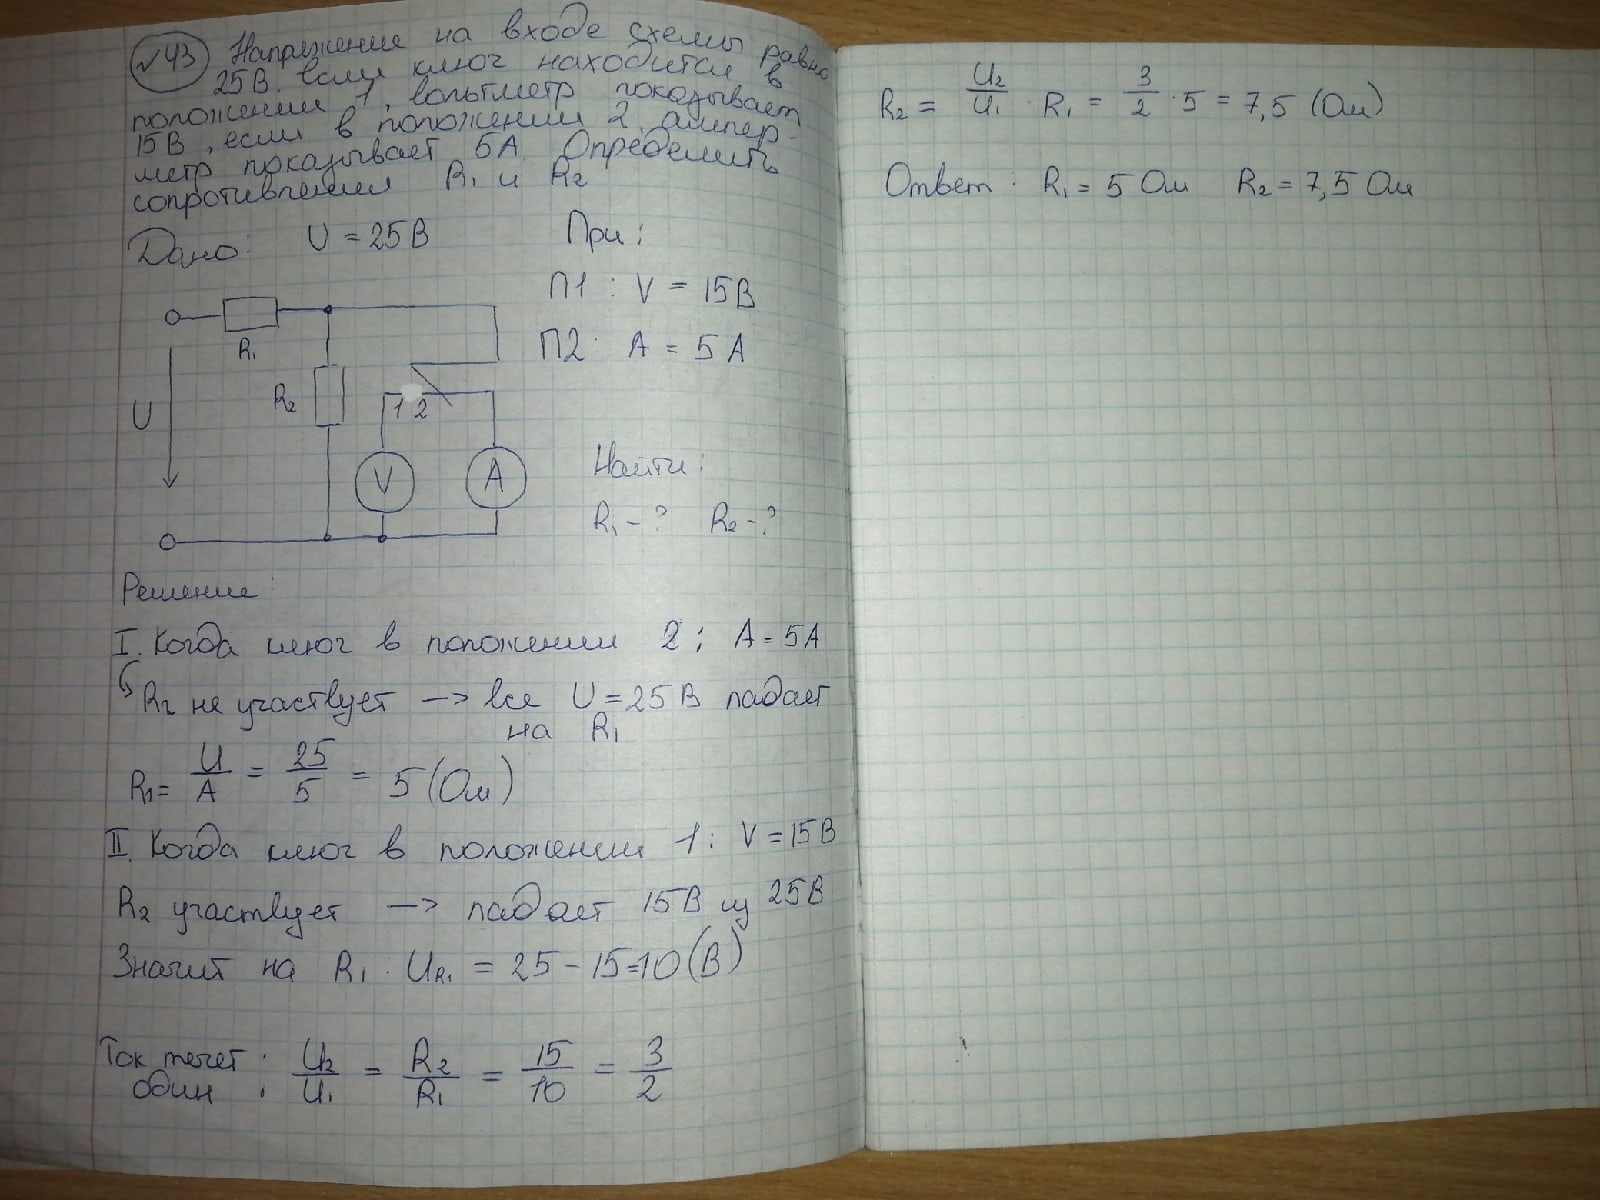 №43 Напряжение на входе схемы равно
25В. Если ключ находится в
положении 1, вольтметр показывает
15В, если в положении 2, ампер-
метр показывает 5А. Определить
сопротивления R1 и R2
Дано: U = 25В
При:
П1: V = 15В
П2: A = 5А
R1
R2
U
1 2
V
A
Найти:
R1 - ? R2 - ?
Решение:
I. Когда ключ в положении 2; A = 5А
R2 не участвует —> все U = 25В падает
на R1
R1 = U/A = 25/5 = 5 (Ом)
II. Когда ключ в положении 1: V = 15В
R2 участвует —> падает 15В из 25В
Значит на R1: UR1 = 25 - 15 = 10 (В)
Ток течет один: U2/U1 = R2/R1 = 15/10 = 3/2
R2 = U2/U1 · R1 = 3/2 · 5 = 7,5 (Ом)
Ответ: R1 = 5 Ом R2 = 7,5 Ом